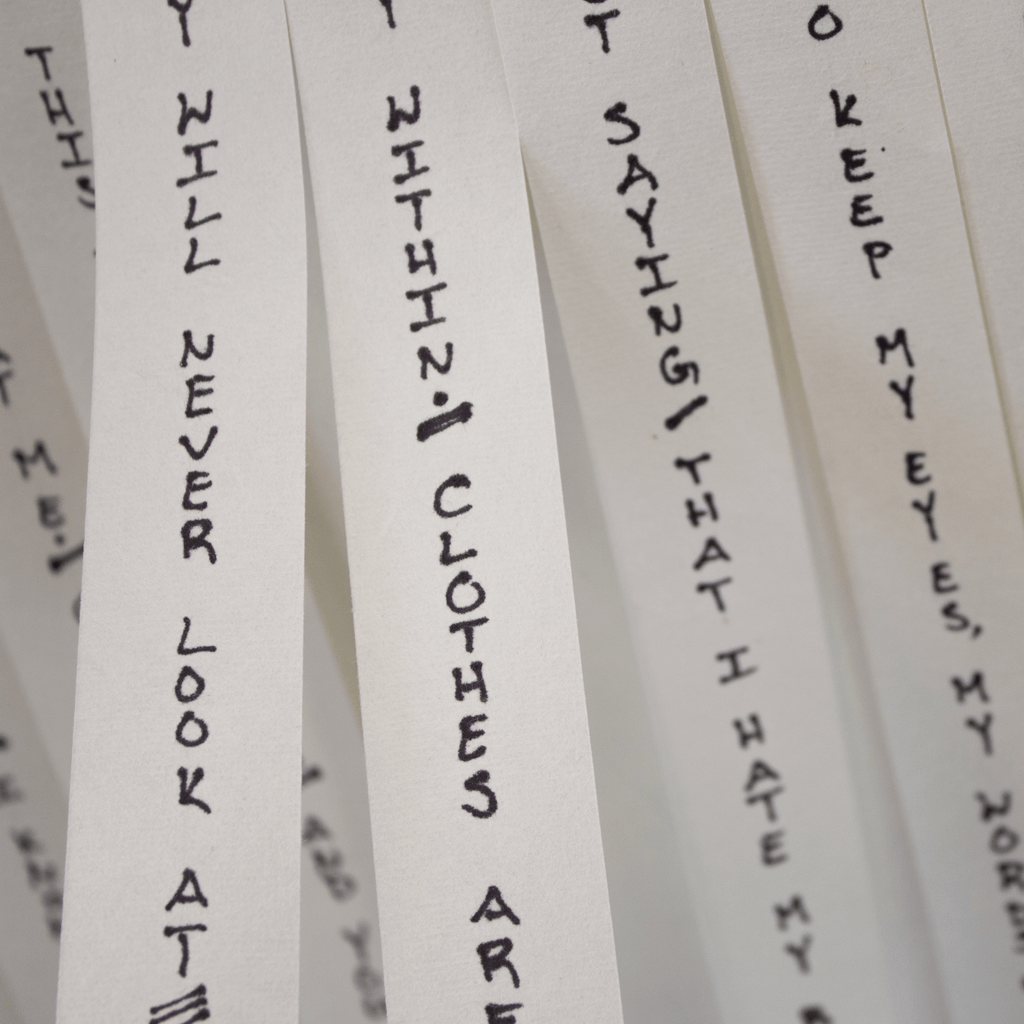 THIS
ME./
Y WILL NEVER LOOK AT
Y WITHIN./ CLOTHES ARE
AND YOU
T SAYING/ THAT I HATE MY
O KEEP MY EYES, MY WORDS